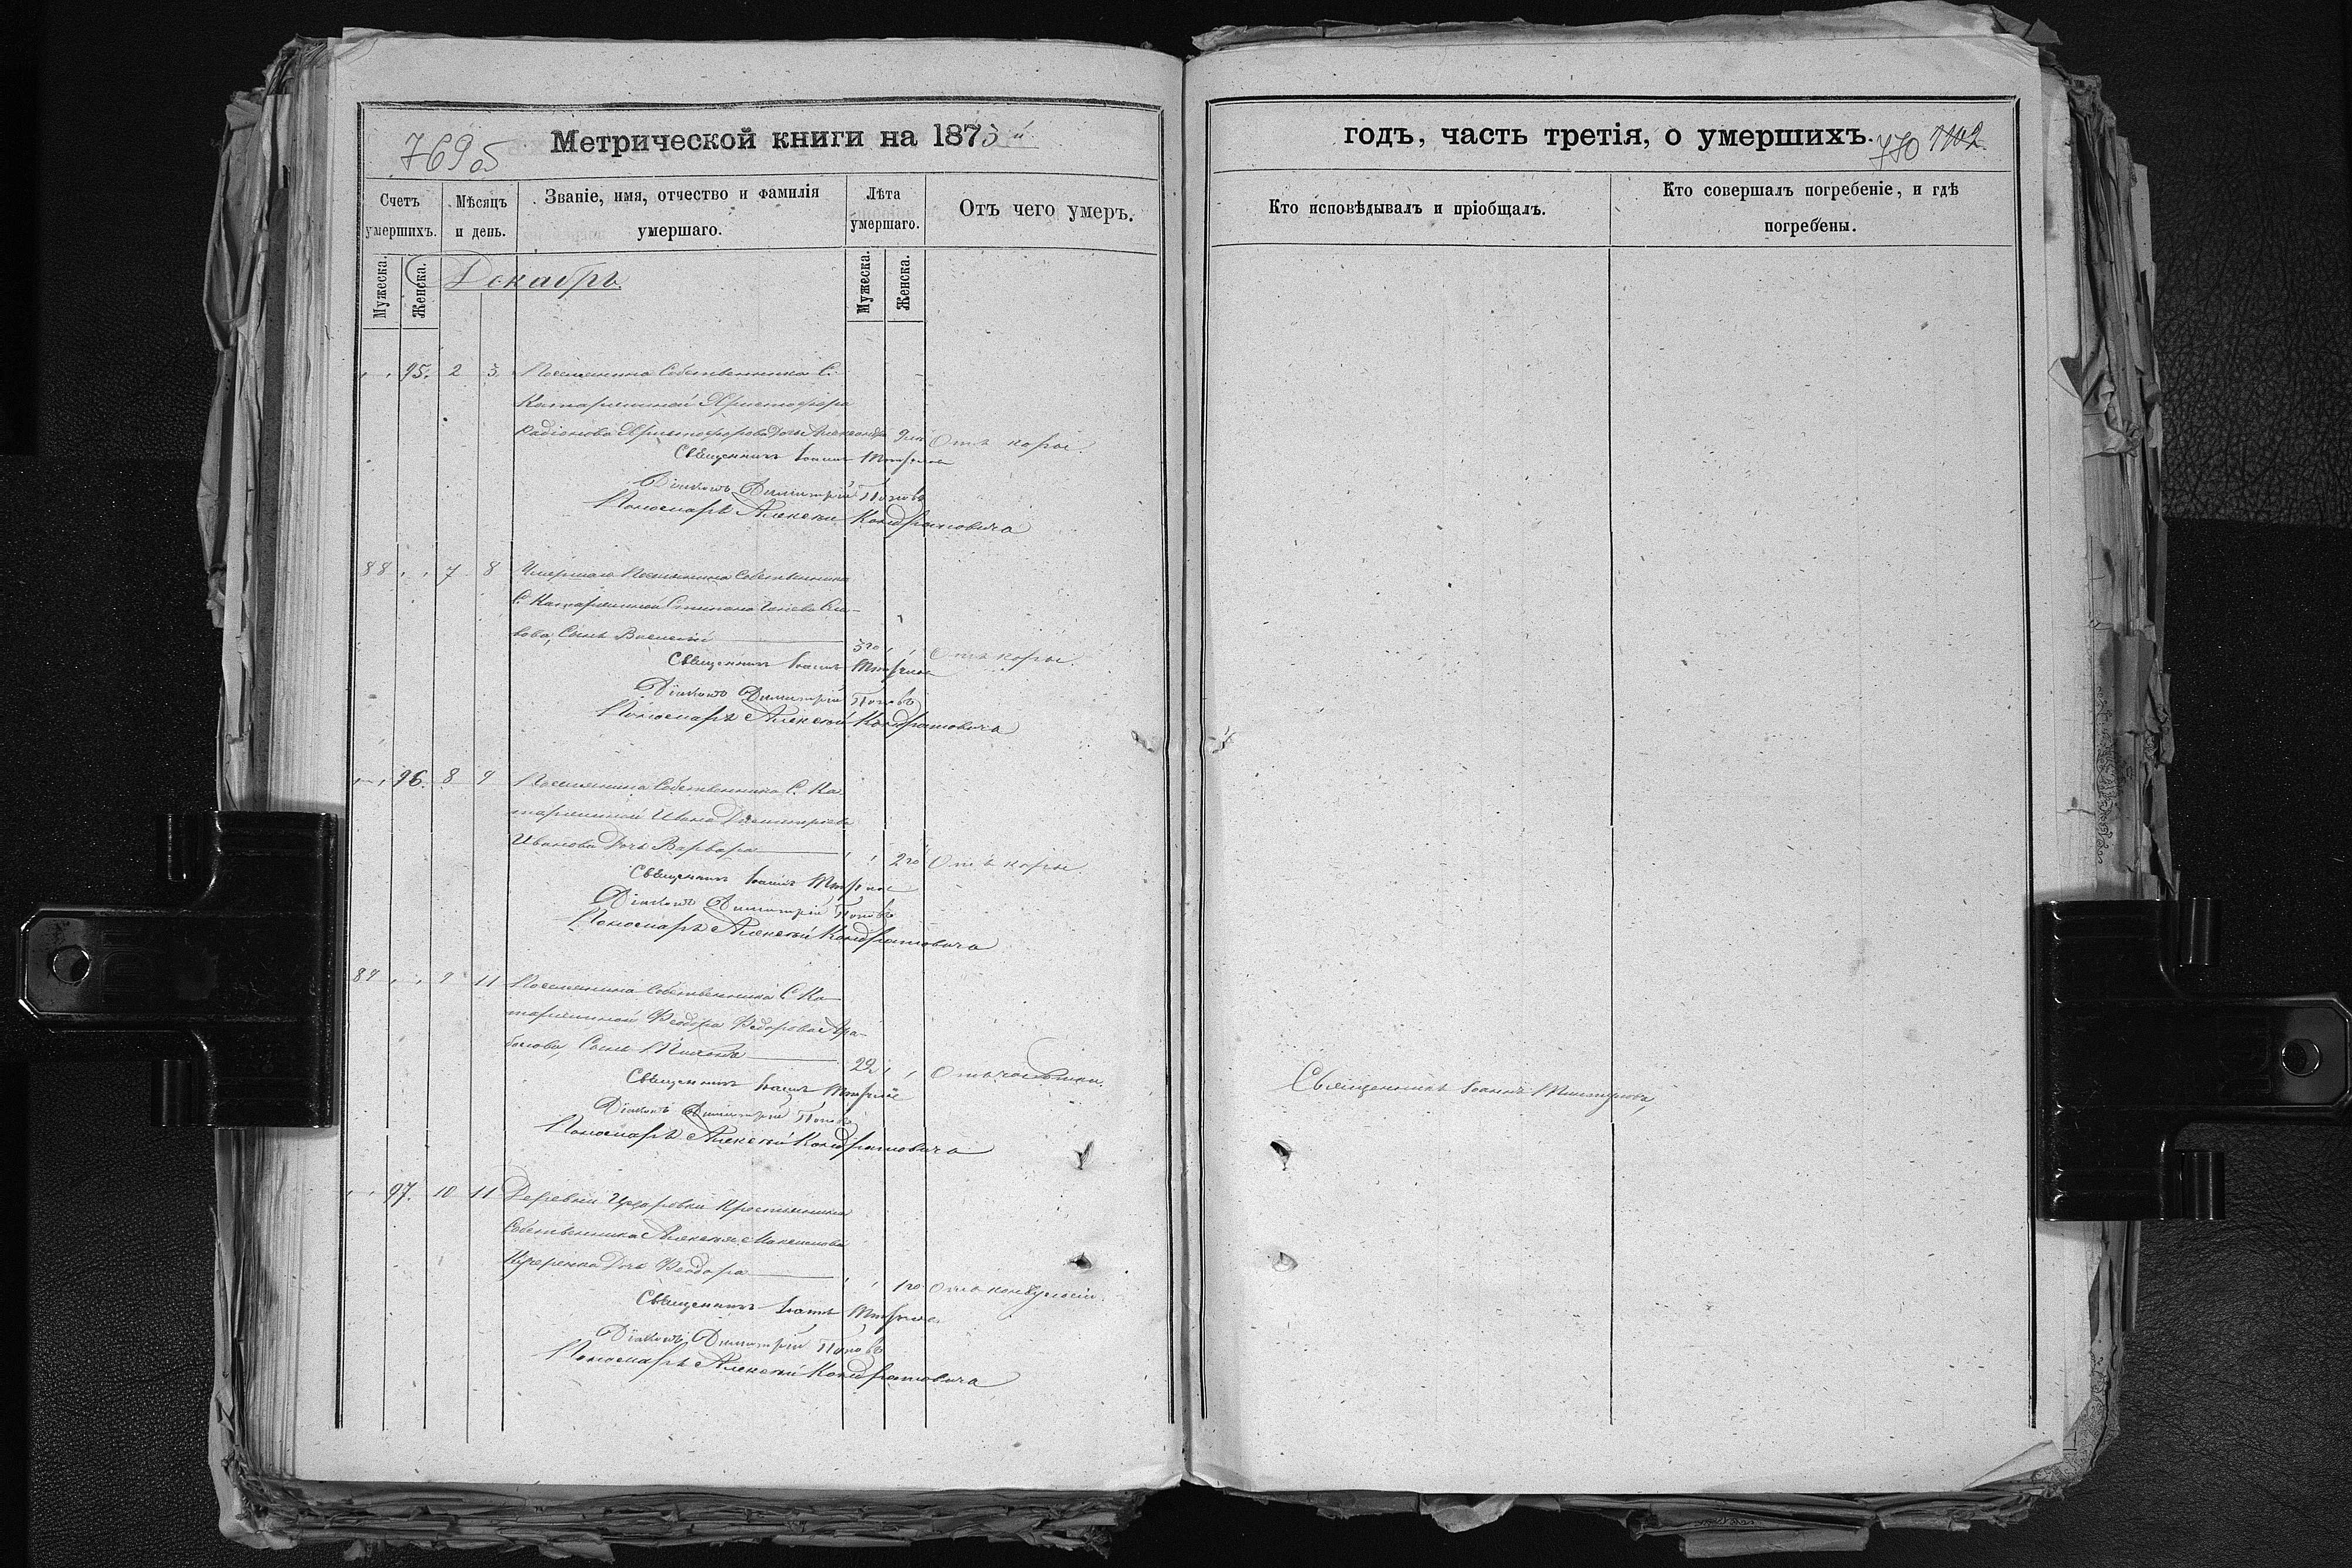 769 об
Метрической книги на 1873й
Счетъ умершихъ.
Мѣсяцъ и день.
Званіе, имя, отчество и фамилія умершаго.
Лѣта умершаго.
Отъ чего умеръ.
Мужеска.
Женска.
Декабрь.
Мужеска.
Женска.
95. 2 3 Поселянина Собственника С.
Катаржиной Христофора
Радіонова Христофорова Дочь Александра Отъ коры.
Священникъ Іоаннъ
Діаконъ Димитрій Поповъ
Пономарь Алексѣй Кондратовича
88 7 8 Умершаго Поселянина Собственника
С. Катаржиной Степана
Сынъ Василій 3го Отъ коры.
Священникъ Іоаннъ
Діаконъ Димитрій Поповъ
Пономарь Алексѣй Кондратовича
96. 8 9 Поселянина Собственника С. Ка
таржиной Ивана Димитріева
Иванова Дочь Варвара 2го Отъ коры
Священникъ Іоаннъ
Діаконъ Димитрій Поповъ
Пономарь Алексѣй Кондратовича
89 9 11 Поселянина Собственника С. Ка
таржиной Феодора Федорова
Сынъ 29
Священникъ Іоаннъ
Діаконъ Димитрій Поповъ
Пономарь Алексѣй Кондратовича
97. 10 11 Деревни Крестьянина
Собственника Алексѣя Максимова
Дочь Феодора 1го Отъ конвульсіи.
Священникъ Іоаннъ
Діаконъ Димитрій Поповъ
Пономарь Алексѣй Кондратовича
годъ, часть третія, о умершихъ.
770 1102
Кто исповѣдывалъ и пріобщалъ.
Кто совершалъ погребеніе, и гдѣ
погребены.
Священникъ Іоаннъ